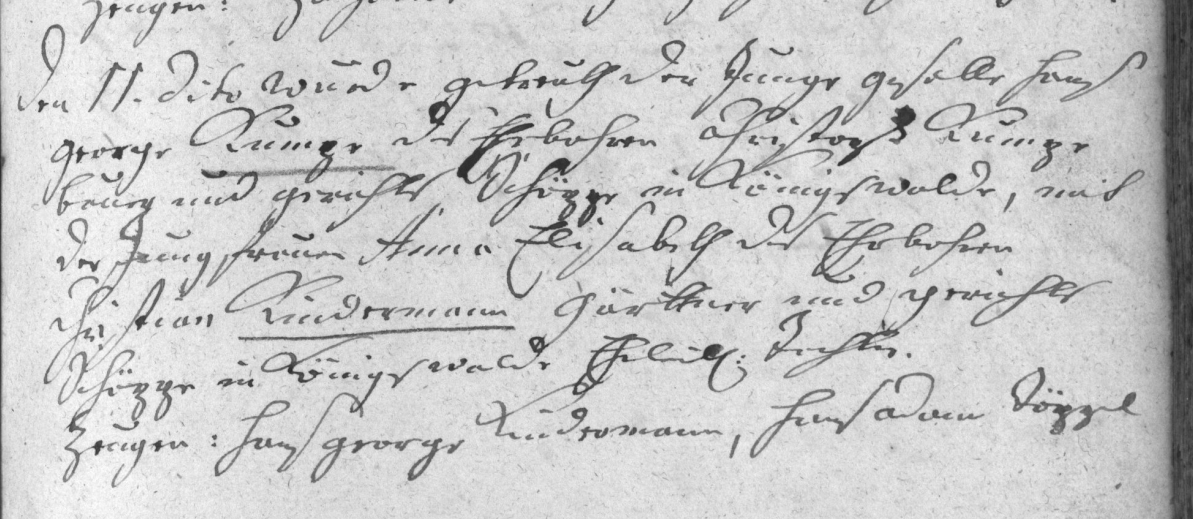 Zeugen:
den 11. dito wurde getreuth der Junge geselle Hans
George Kumpe des Ehrbahren Christoph Kumpe
bauer und gerichts Schöppe in Königswalde, mit
der Jungfrauen Anna Elisabeth des Ehrbahren
Christian Kindermann Gärttner und gerichts
Schöppe in Königswalde Ehelich: Tochter.
Zeugen: Hans George Kindermann, Hans Adam Töppel